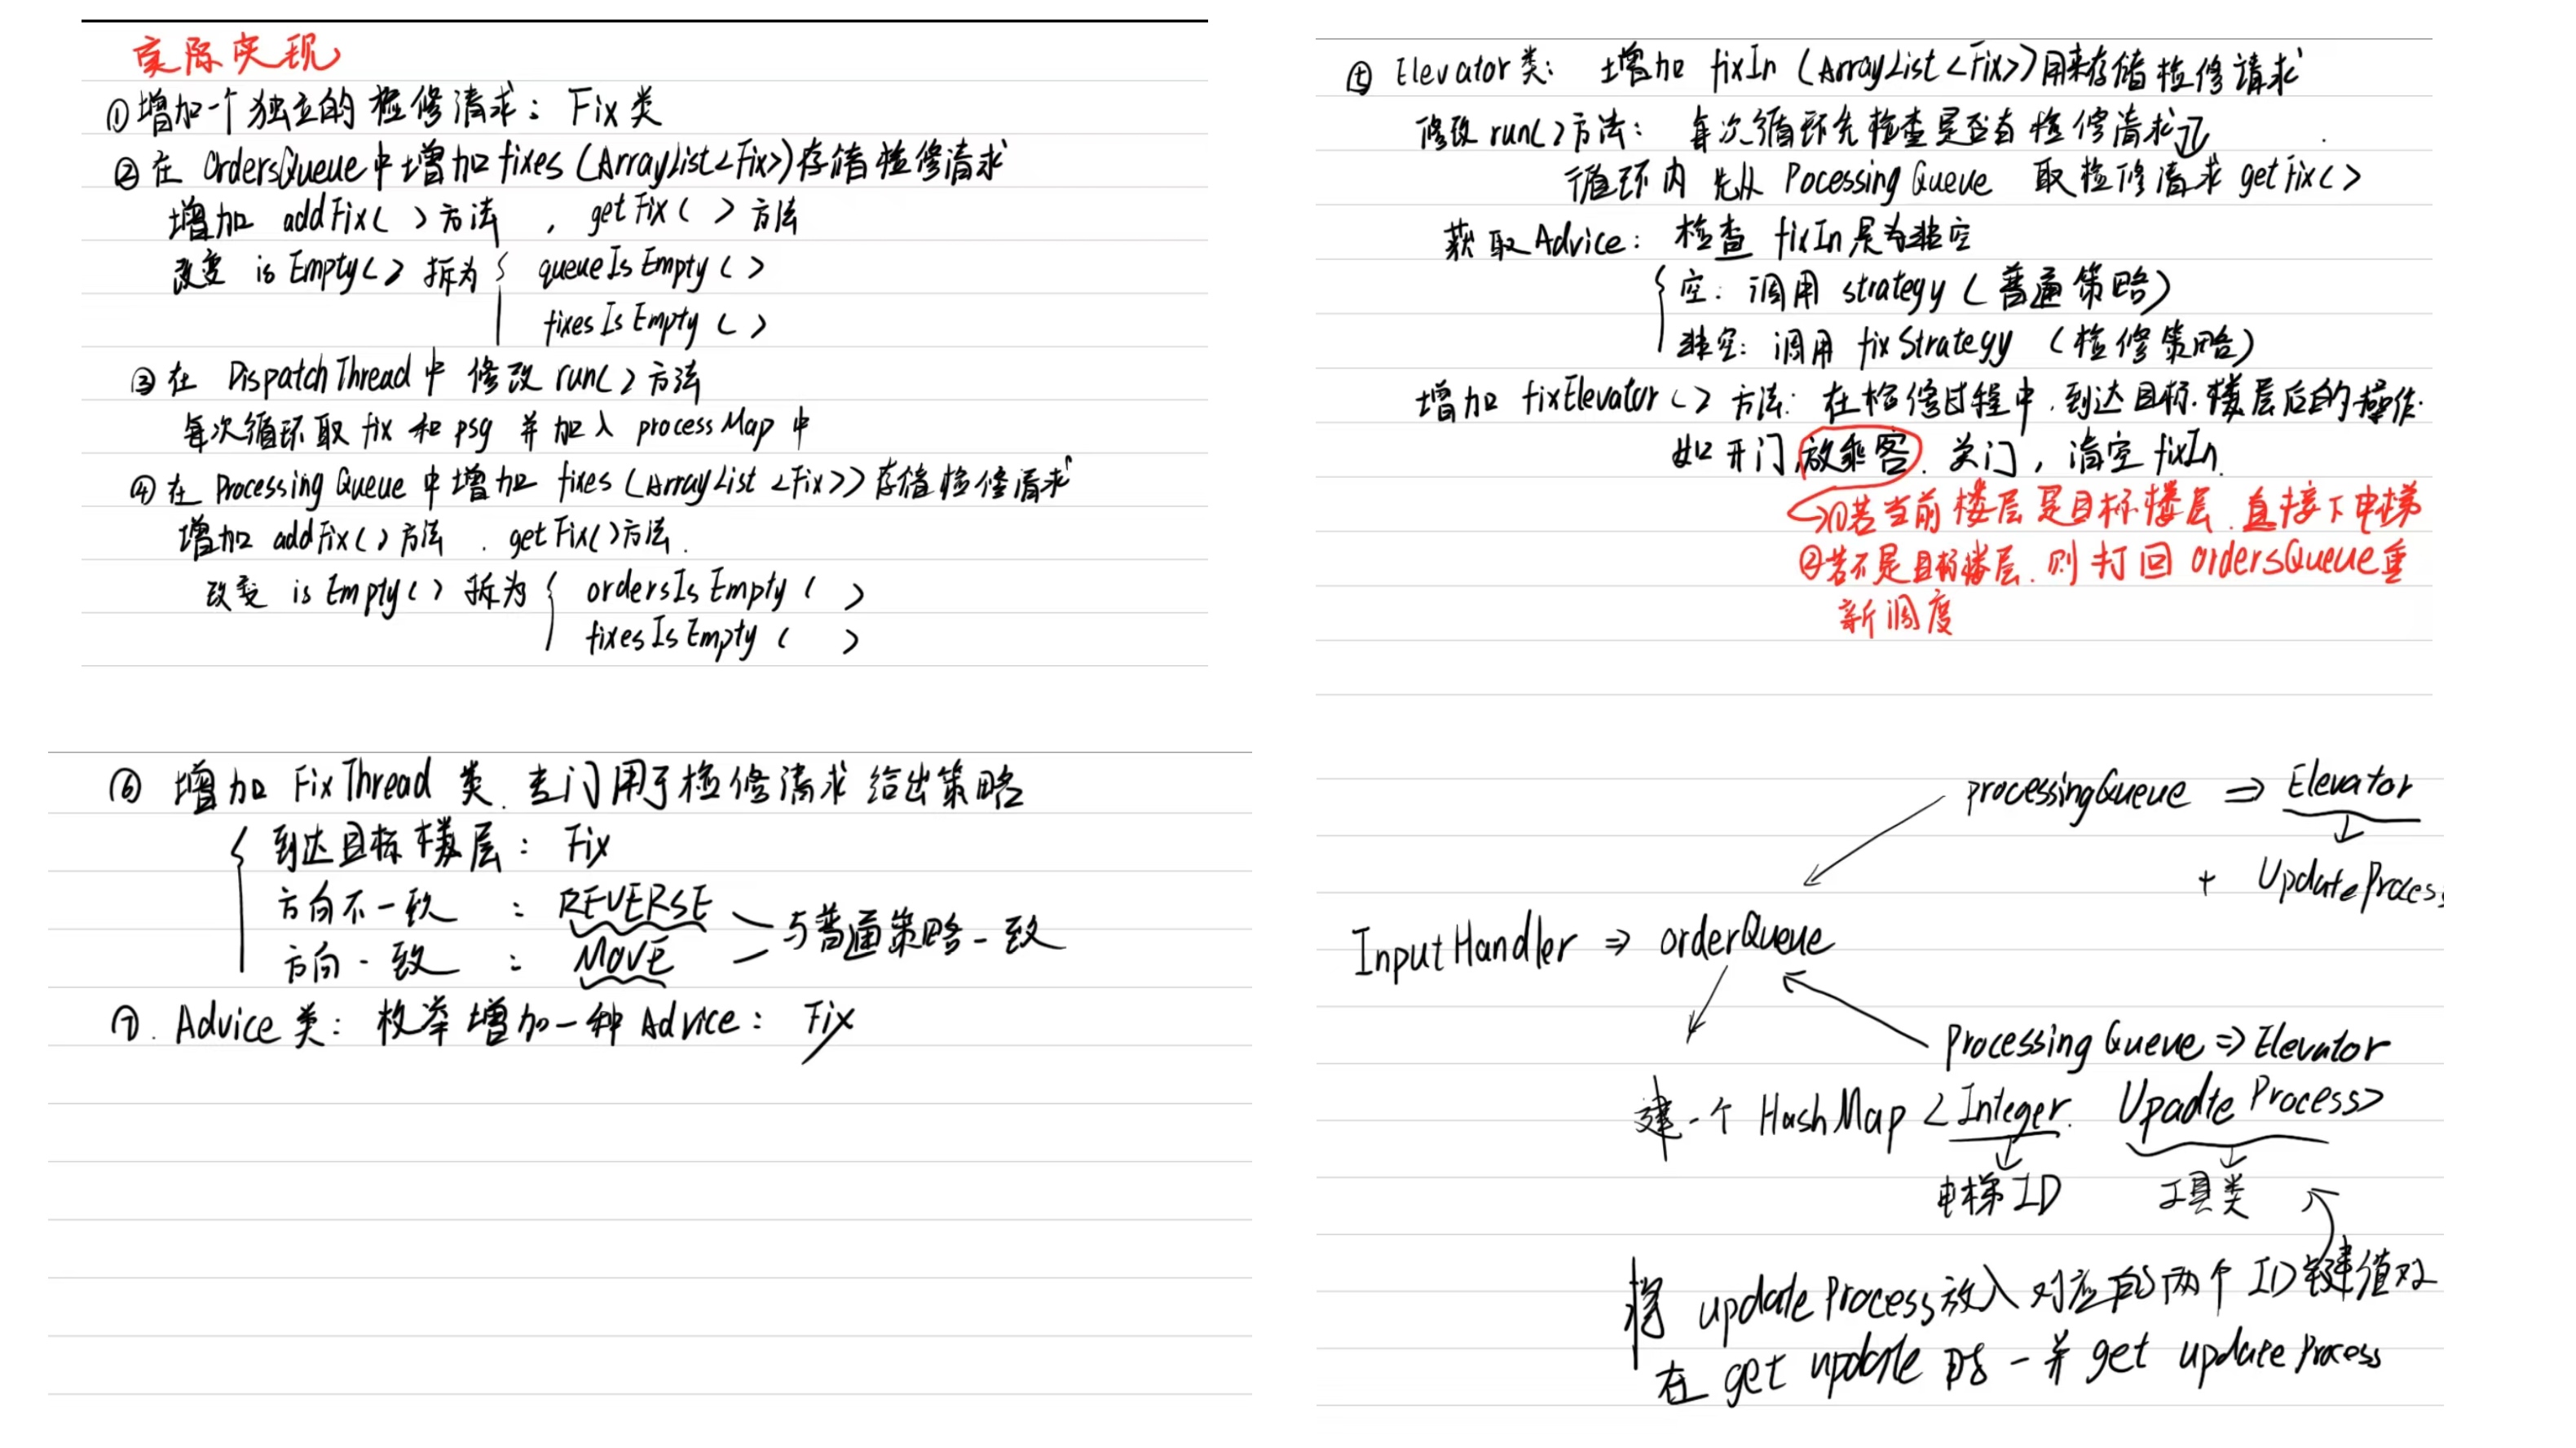 实际实现
①增加一个独立的检修请求：Fix类
②在 OrdersQueue中增加fixes (ArrayList<Fix>)存储检修请求
增加 addFix( )方法 , getFix( )方法
改变 isEmpty() 拆为 { queueIsEmpty ( )
fixesIsEmpty ( )
③在 DispatchThread中 修改 run()方法
每次循环取 fix 和 psg 并加入 processMap 中
④在 Processing Queue 中增加 fixes (ArrayList <Fix>) 存储检修请求
增加 addFix()方法 . getFix()方法.
改变 isEmpty() 拆为 { ordersIsEmpty ( )
fixesIsEmpty ( )
⑤ Elevator类： 增加 fixIn (ArrayList<Fix>)用来存储检修请求
修改 run()方法： 每次循环先检查是否有检修请求
循环内 先从 Pocessing Queue 取检修请求 getFix()
获取Advice： 检查 fixIn是为非空
{ 空：调用 strategy (普通策略)
非空：调用 fixStrategy (检修策略)
增加 fixElevator() 方法：在检修过程中.到达目标楼层后的操作.
如开门,放乘客.关门，清空fixIn.
①若当前楼层是目标楼层.直接下电梯
②若不是目标楼层.则打回ordersQueue重
新调度
⑥ 增加 FixThread 类.专门用于检修请求给出策略
{ 到达目标楼层： Fix
方向不一致 ： REVERSE
方向一致 ： MOVE
与普通策略一致
⑦. Advice类：枚举增加一种Advice： Fix
processingQueue ⇒ Elevator
+ UpdateProcess
InputHandler ⇒ orderQueue
Processing Queue ⇒ Elevator
建一个 HashMap <Integer. Upadte Process>
电梯ID 工具类
将 updateProcess放入对应的两个ID键值对
在 get update 时一并 get updateProcess